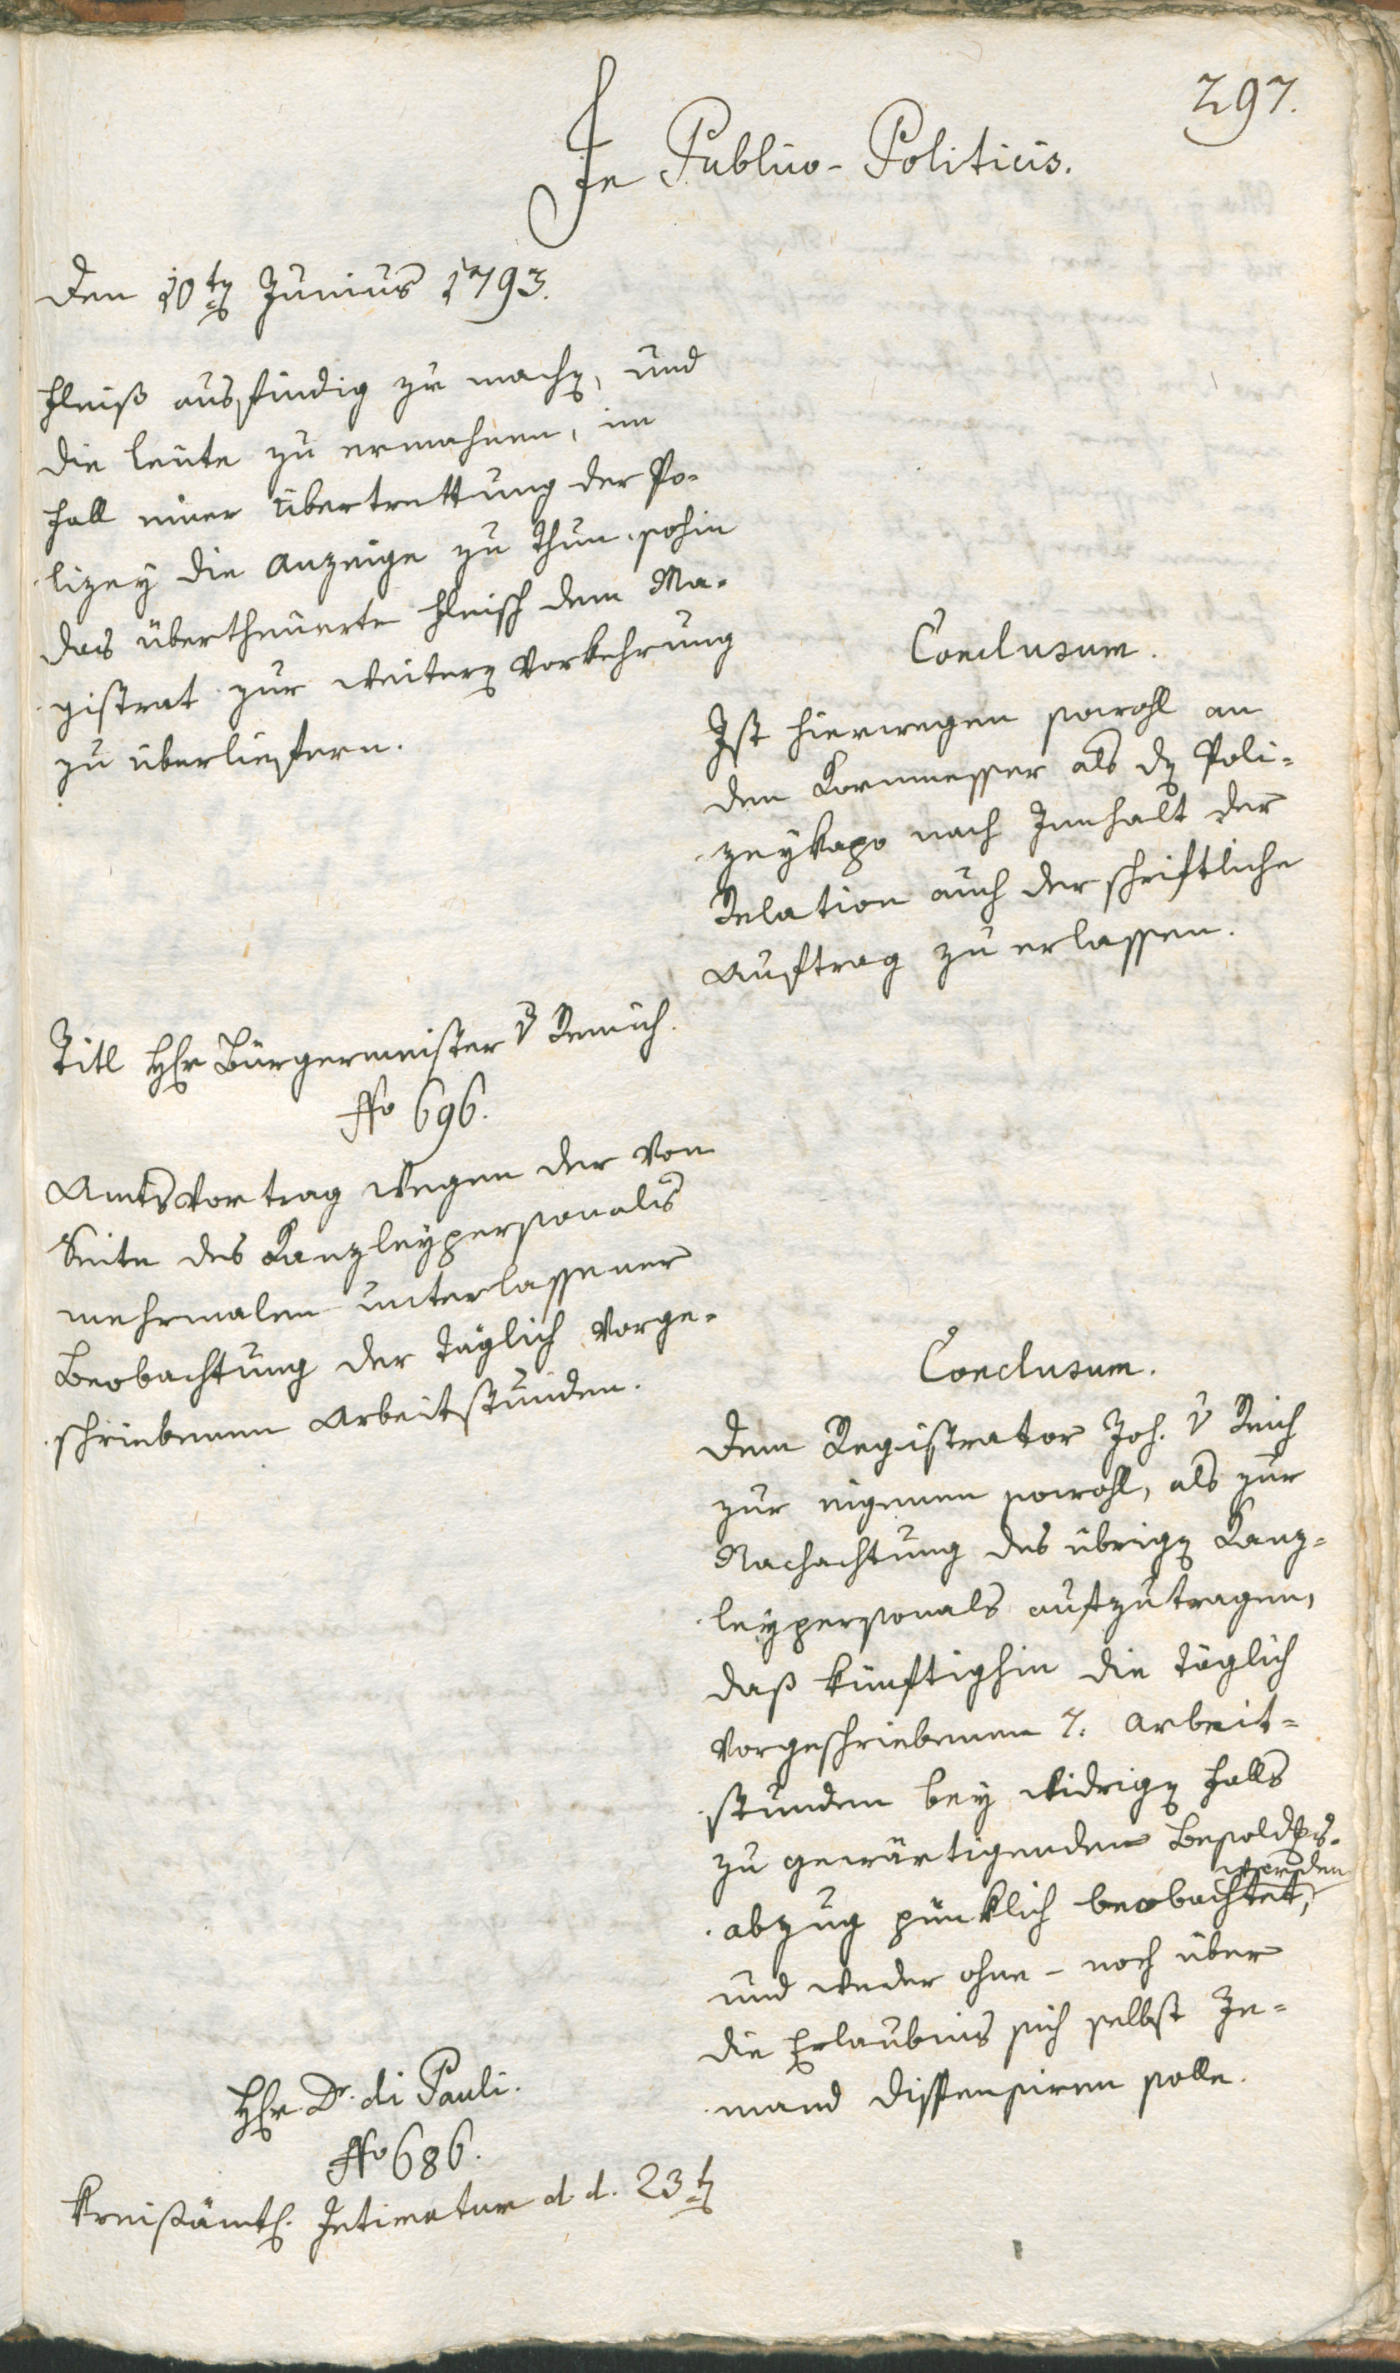 297.
In Publico-Politicis.
Den 10ten Junius 1793.
Fleiß ausfindig zu machen, und
die Leute zu ermahnen, im
Fall einer Übertrettung der Po-
lizey die Anzeige zu thun, sohin
das übertheuerte Fleisch dem Ma-
gistrat zur weitern Vorkehrung
zu überliefern.
Conclusum.
Ist hierwegen sowohl an
den Kornmesser als den Poli-
zeykapo nach Innhalt der
Relation auch der schriftliche
Auftrag zu erlassen.
Titl Hr Bürgermeister v Remich.
No 696.
Amtsvortrag wegen der von
Seite des Kanzleypersonals
mehrmalen unterlassener
Beobachtung der täglich vorge-
schriebenen Arbeitstunden.
Conclusum.
Dem Registrator Joh. v Reich
zur eigenen sowohl, als zur
Nachachtung des übrigen Kanz-
leypersonals aufzutragen,
daß künftighin die täglich
vorgeschriebenen 7. Arbeit-
stunden bey widrigen Falls
zu gewärtigenden Besoldgs-
abzug pünklich beobachtet, werden
und weder ohne - noch über
die Erlaubnis sich selbst Je-
mand dispensiren solle.
Hr Dr. di Pauli.
No 686.
Kreißämtl. Intimatum d. d. 23t